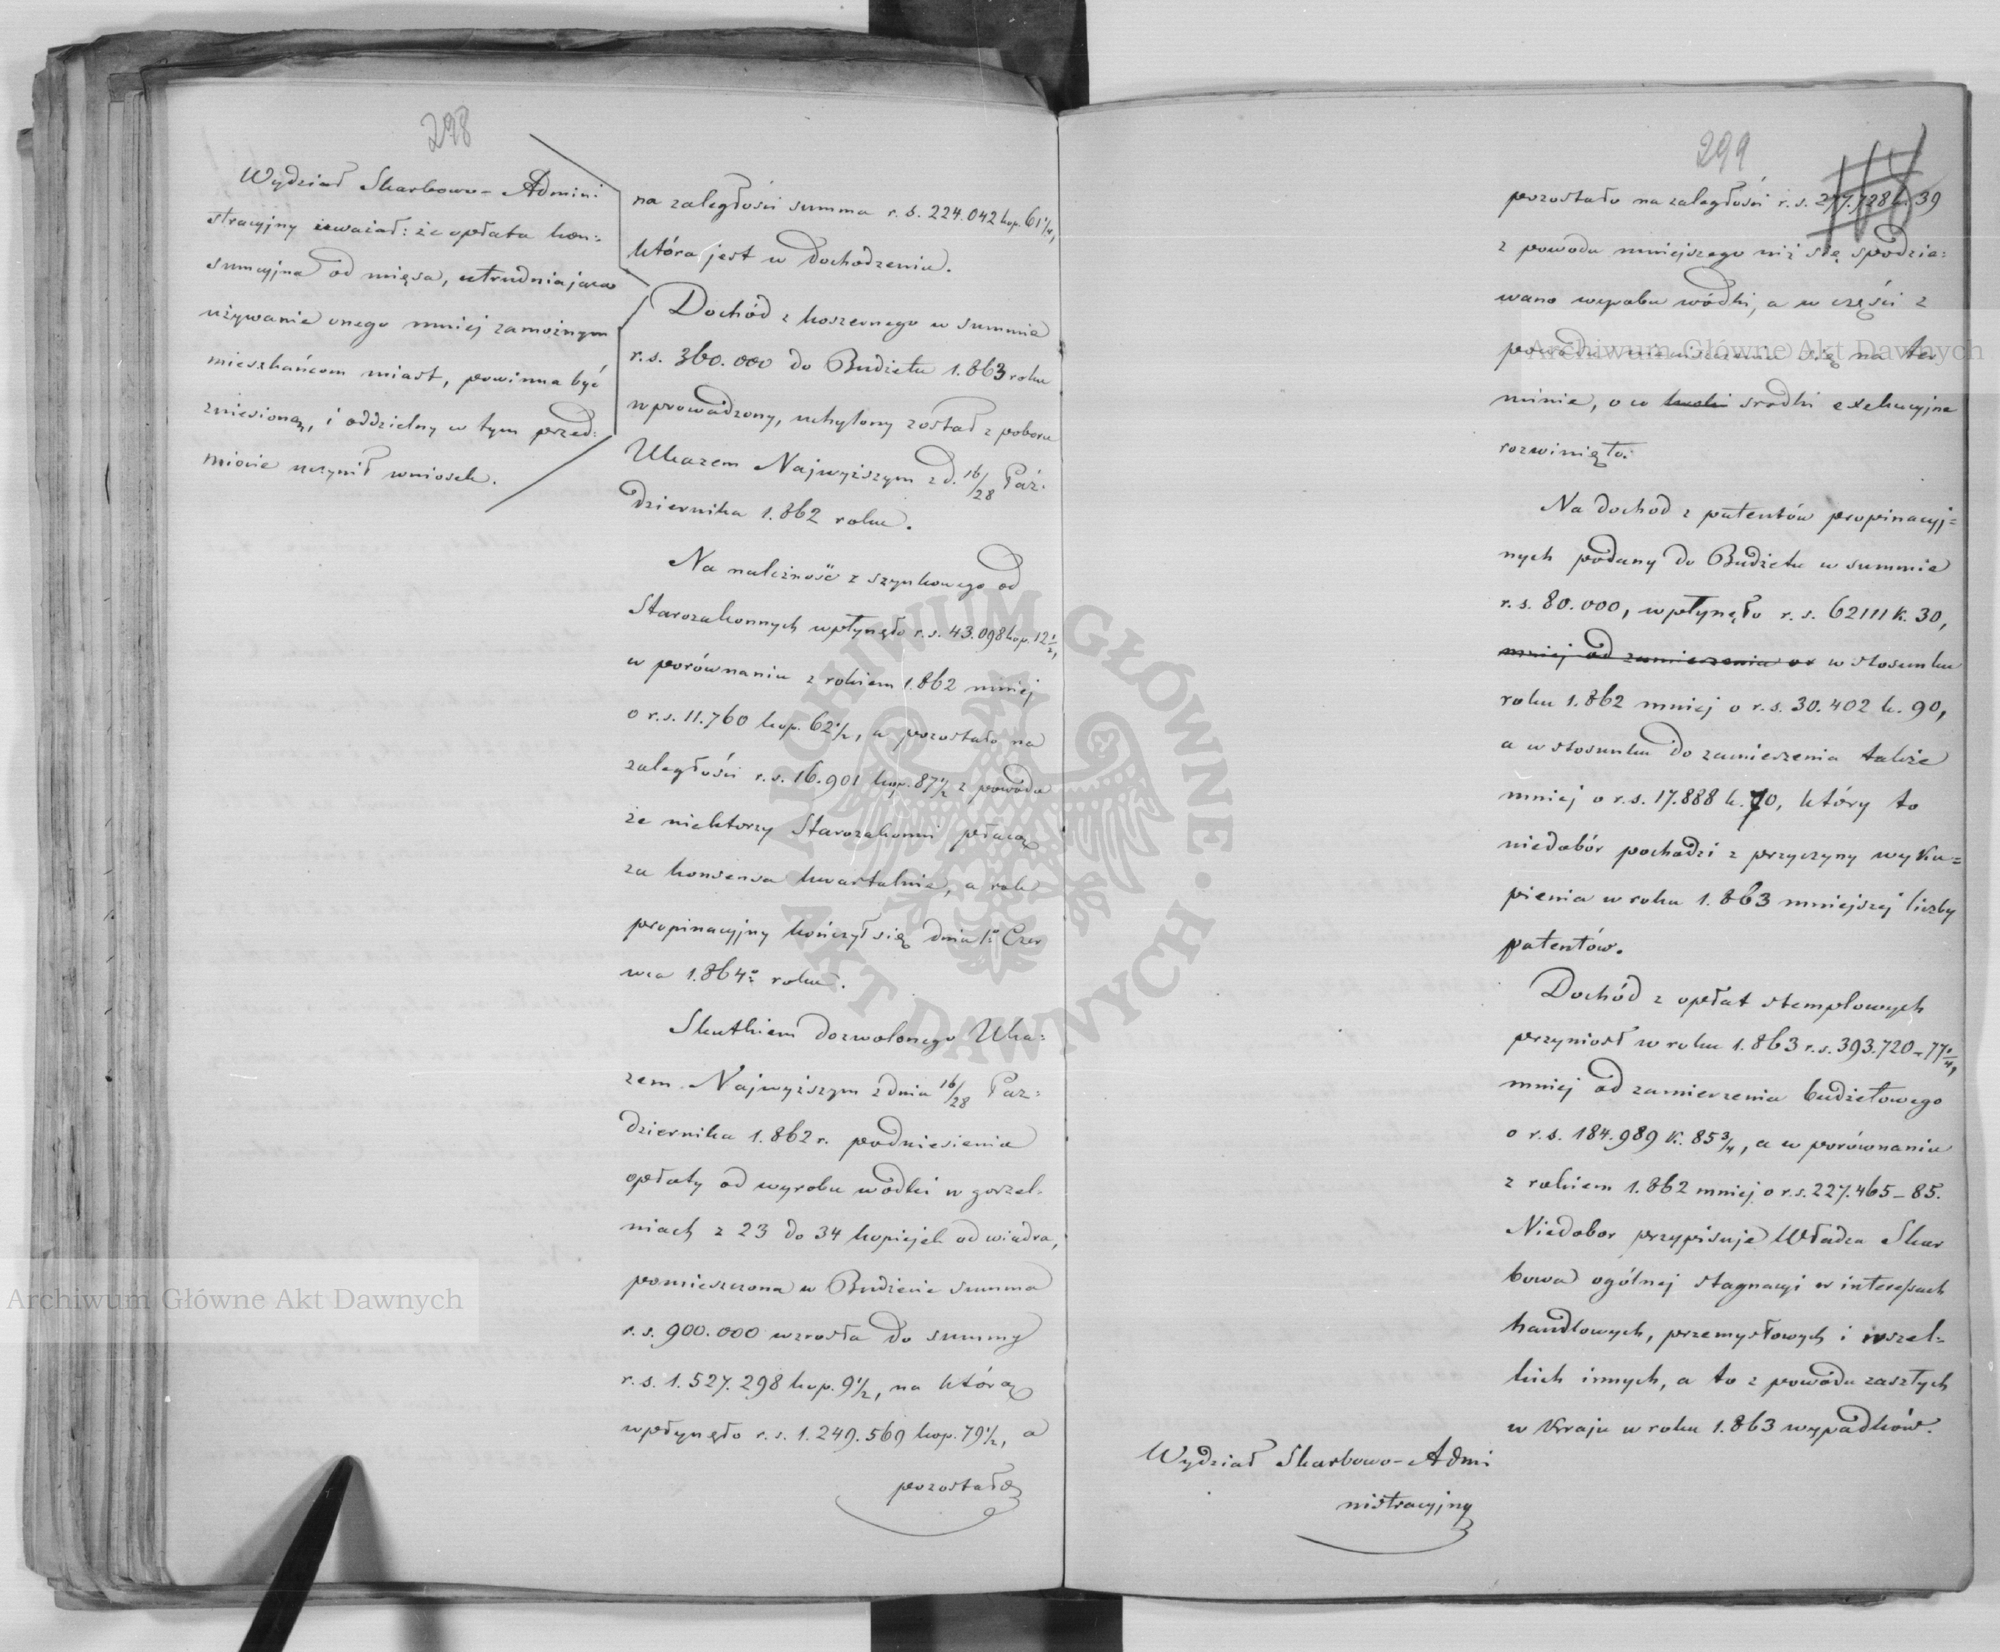 298
Wydział Skarbowo-Admini:
stracyjny uważał: że opłata kon:
sumcyjna od mięsa, utrudniająca
używanie onego mniej zamożnym
mieszkańcom miast, powinna być
zniesioną, i oddzielny w tym przed:
miocie uczynił wniosek.
na zaległości summa r. s. 224.042 kop. 61 1/4,
która jest w dochodzeniu.
Dochód z koszernego w summie
r. s. 360.000 do Budżetu 1.863 roku
wprowadzony, uchylony został z poboru
Ukazem Najwyższym z d. 16/28 Paź:
dziernika 1.862 roku.
Na należność z szynkowego od
Starozakonnych wpłynęło r. s. 43.098 kop. 12 1/2,
w porównaniu z rokiem 1.862 mniej
o r. s. 11.760 kop. 62 1/2, a pozostało na
zaległości r. s. 16.901 kop. 87 1/2 z powodu
że niektorzy Starozakonni płacą
za konsensa kwartalnie, a rok
propinacyjny kończył się dnia 1o Czer
wca 1.864o roku.
Skutkiem dozwolonego Uka:
zem Najwyższym z dnia 16/28 Paz:
dziernika 1.862 r. podniesienia
opłaty od wyrobu wodki w gorzel:
niach z 23 do 34 kopiejek od wiadra,
pomieszczona w Budżecie summa
r. s. 900.000 wzrosła do summy
r. s. 1.527.298 kop. 9 1/2, na którą
wpłynęło r. s. 1.249.569 kop. 79 1/2, a
pozostało
299
pozostało na zaległości r. s. 277.728 k. 39
z powodu mniejszego niż się spodzie:
wano wyrobu wódki, a w części z
powodu nieuiszczenia się na ter
minie, o co kroki srodki exekucyjne
rozwinięto.
Na dochod z patentów propinacyj=
nych podany do Budżetu w summie
r. s. 80.000, wpłynęło r. s. 62111 k. 30,
mniej od zamierzenia w stosunku
roku 1.862 mniej o r. s. 30.402 k. 90,
a w stosunku do zamierzenia także
mniej o r. s. 17.888 k. 70, który to
niedobór pochodzi z przyczyny wyku=
pienia w roku 1.863 mniejszej liczby
patentów.
Dochód z opłat stemplowych
przyniosł w roku 1.863 r. s. 393.720-77 1/4,
mniej od zamierzenia budżetowego
o r. s. 184.989 k. 85 3/4, a w porównaniu
z rokiem 1.862 mniej o r. s. 227.465-85.
Niedobor przypisuje Władza Skar
bowa ogólnej stagnacyi w interessach
handlowych, przemysłowych i wszel:
kich innych, a to z powodu zaszłych
w Kraju w roku 1.863 wypadków.
Wydział Skarbowo-Admi
nistracyjny
Archiwum Główne Akt Dawnych
Archiwum Główne Akt Dawnych
ARCHIWUM GŁÓWNE AKT DAWNYCH